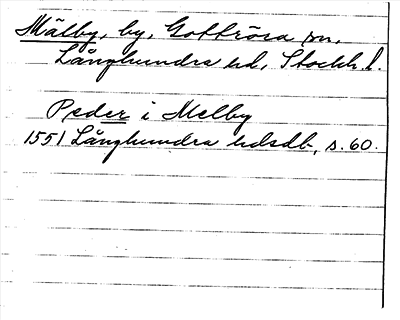 Mälby, by, Gottrösa sn,
Långhundra hd, Stockh. l.
Peder i Melby
1551 Långhundra hdsdb, s. 60.